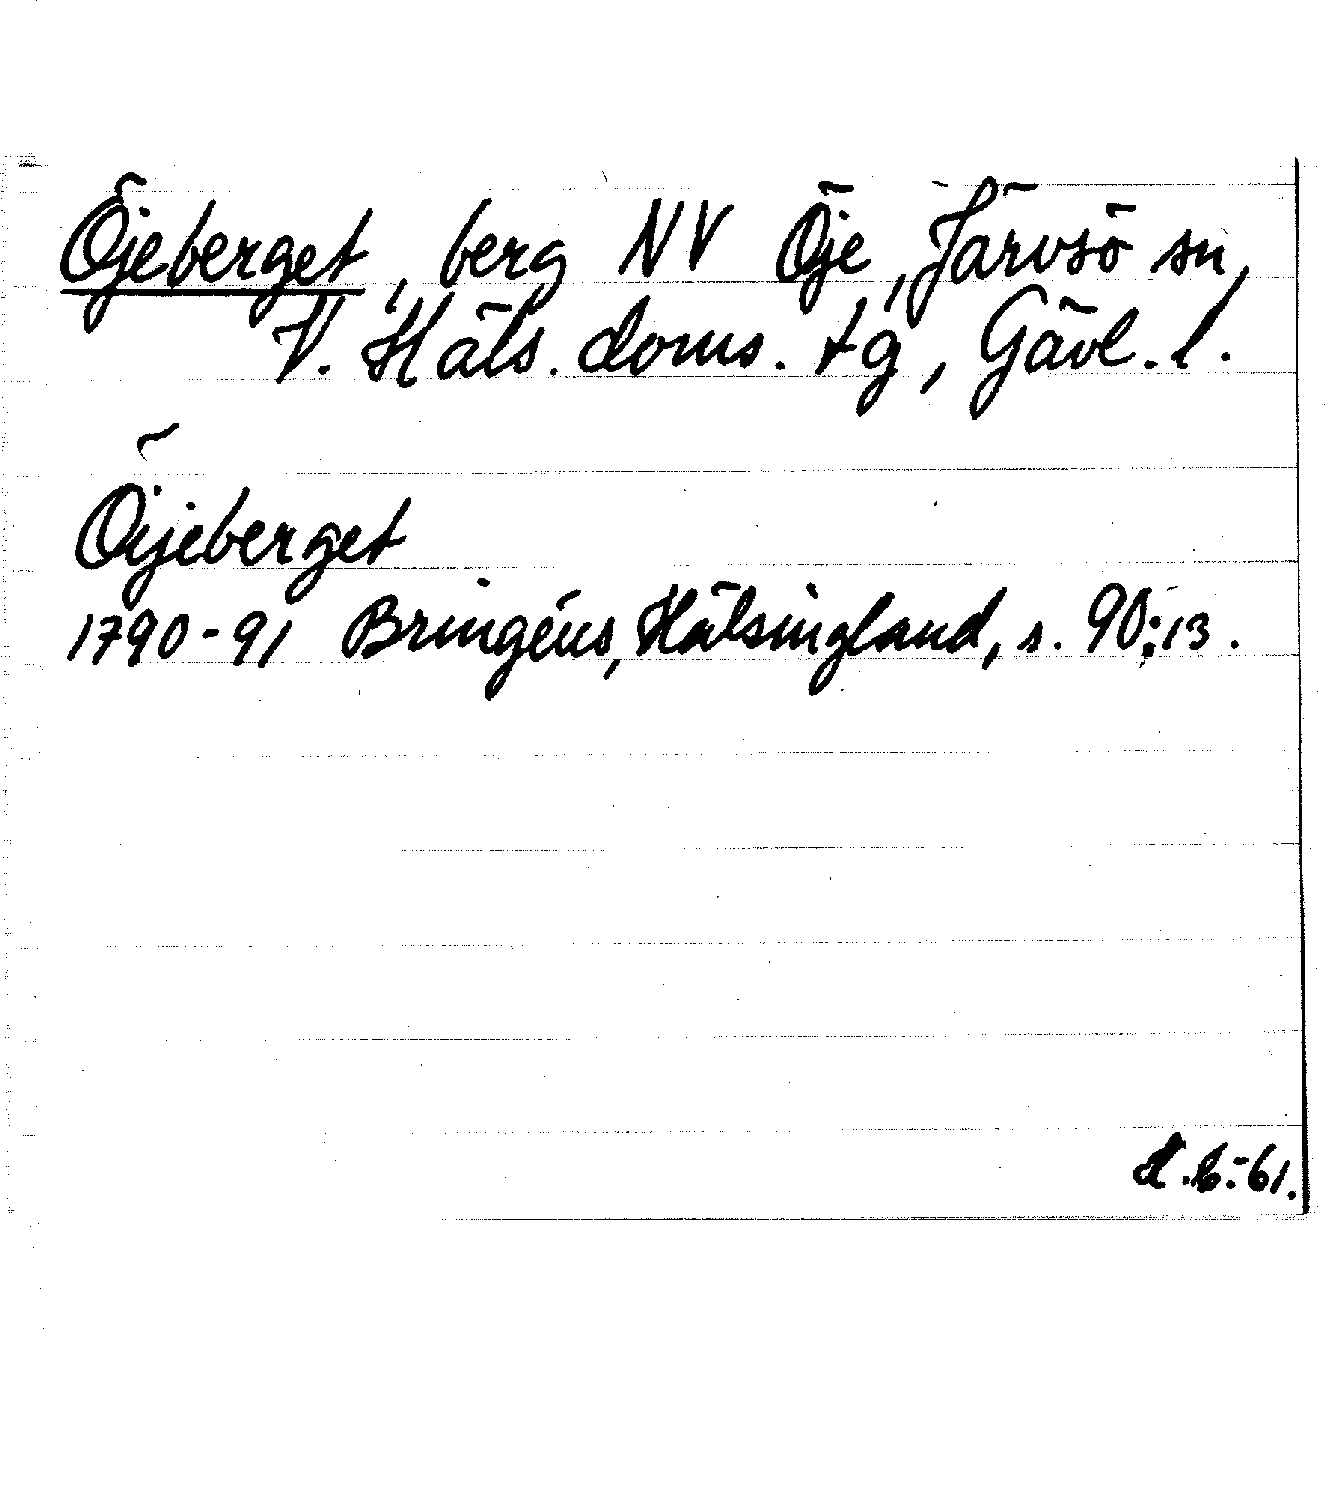 Öjeberget, berg NV Öje, Järvsö sn,
V. Häls. doms. tg, Gävl. l.
Öijeberget
1790-91 Bringéus, Hälsingland, s. 90:13.